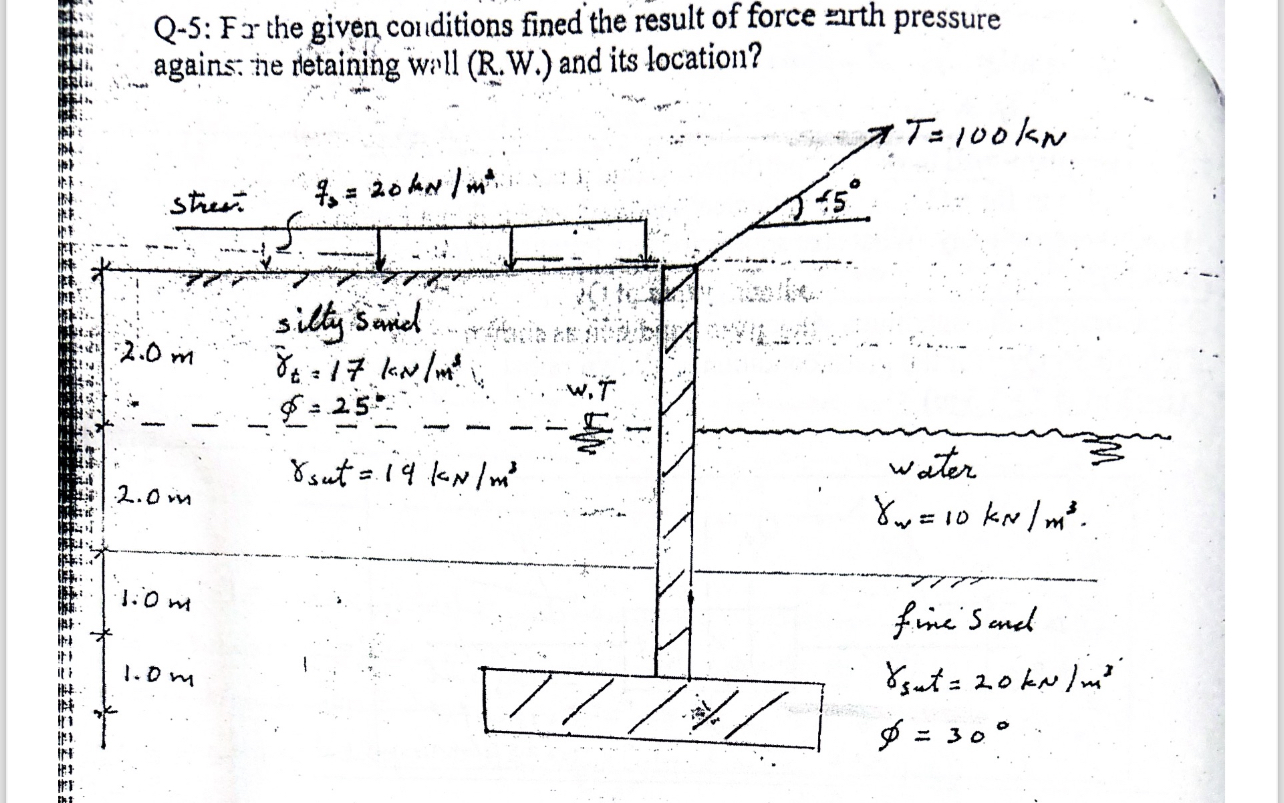 Q-5: For the given conditions fined the result of force earth pressure
against the retaining wall (R.W.) and its location?
T = 100 kN
45°
q_s = 20 kN/m²
2.0 m
silty sand
γt = 17 kN/m³
φ = 25°
W.T
2.0 m
γsat = 19 kN/m³
water
γw = 10 kN/m³.
1.0 m
fine Sand
1.0 m
γsat = 20 kN/m³
φ = 30°